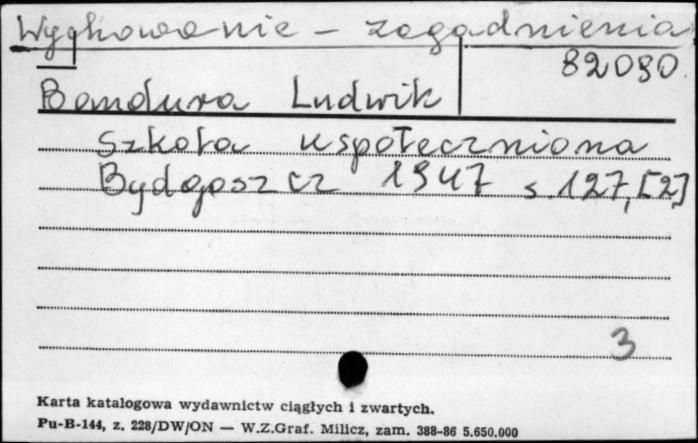 Wychowanie – zagadnienia
82090
Bandura Ludwik
Szkoła uspołeczniona
Bydgoszcz 1947 s. 127, [2]
3
Karta katalogowa wydawnictw ciągłych i zwartych.
Pu-B-144, z. 228/DW/ON — W.Z.Graf. Milicz, zam. 388-86 5.650.000